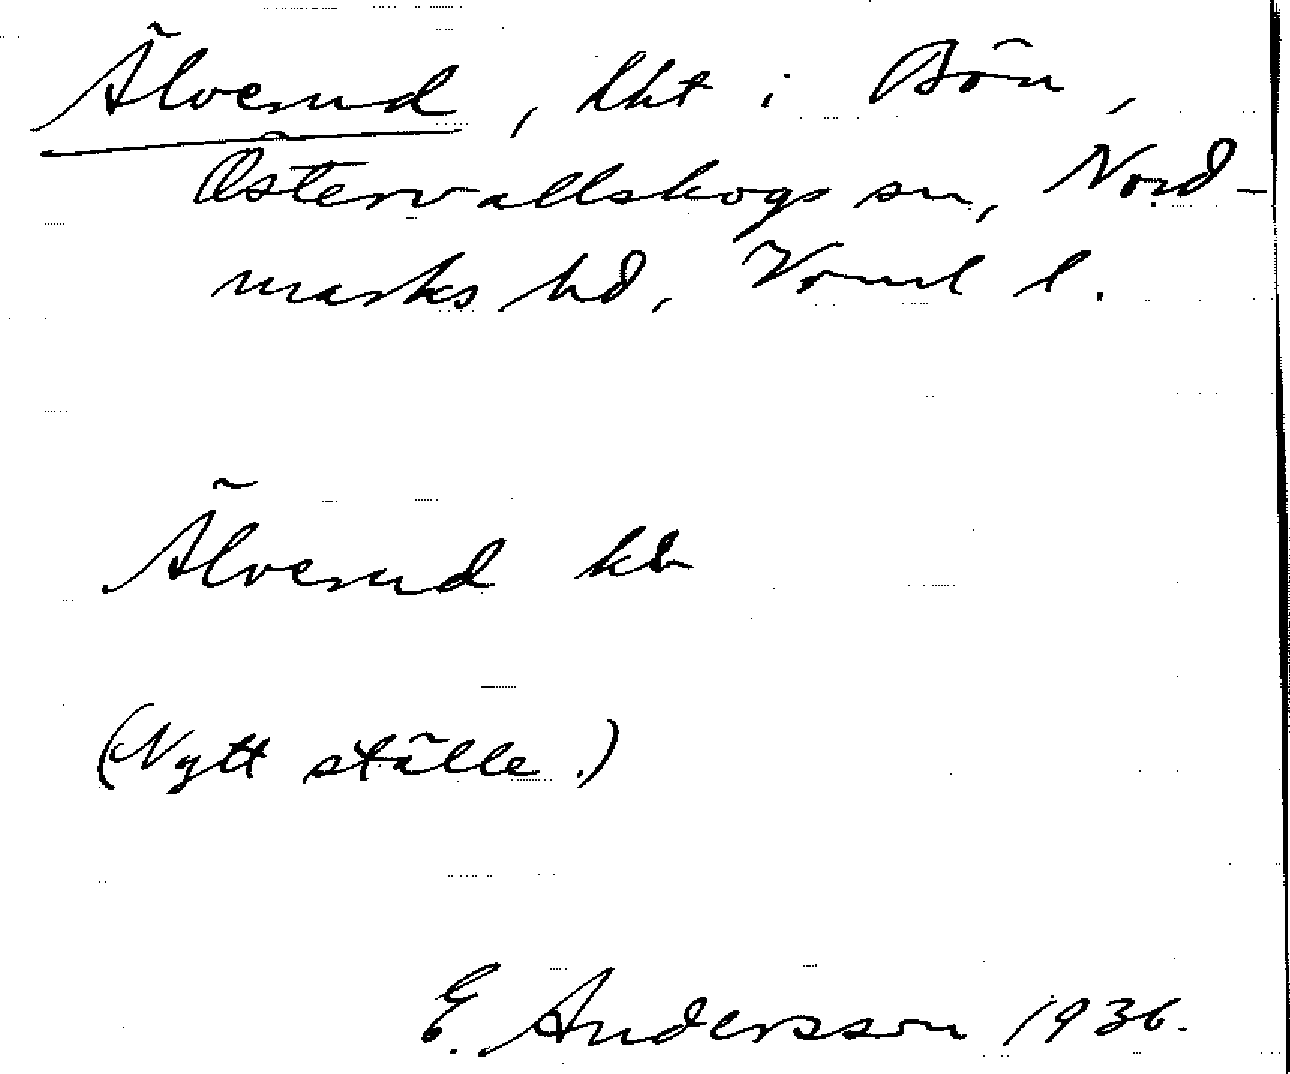 Älverud, lht i Bön,
Östervallskogs sn, Nord-
marks hd, Vrml l.
Älverud kb
(Nytt ställe.)
E. Andersson 1936.